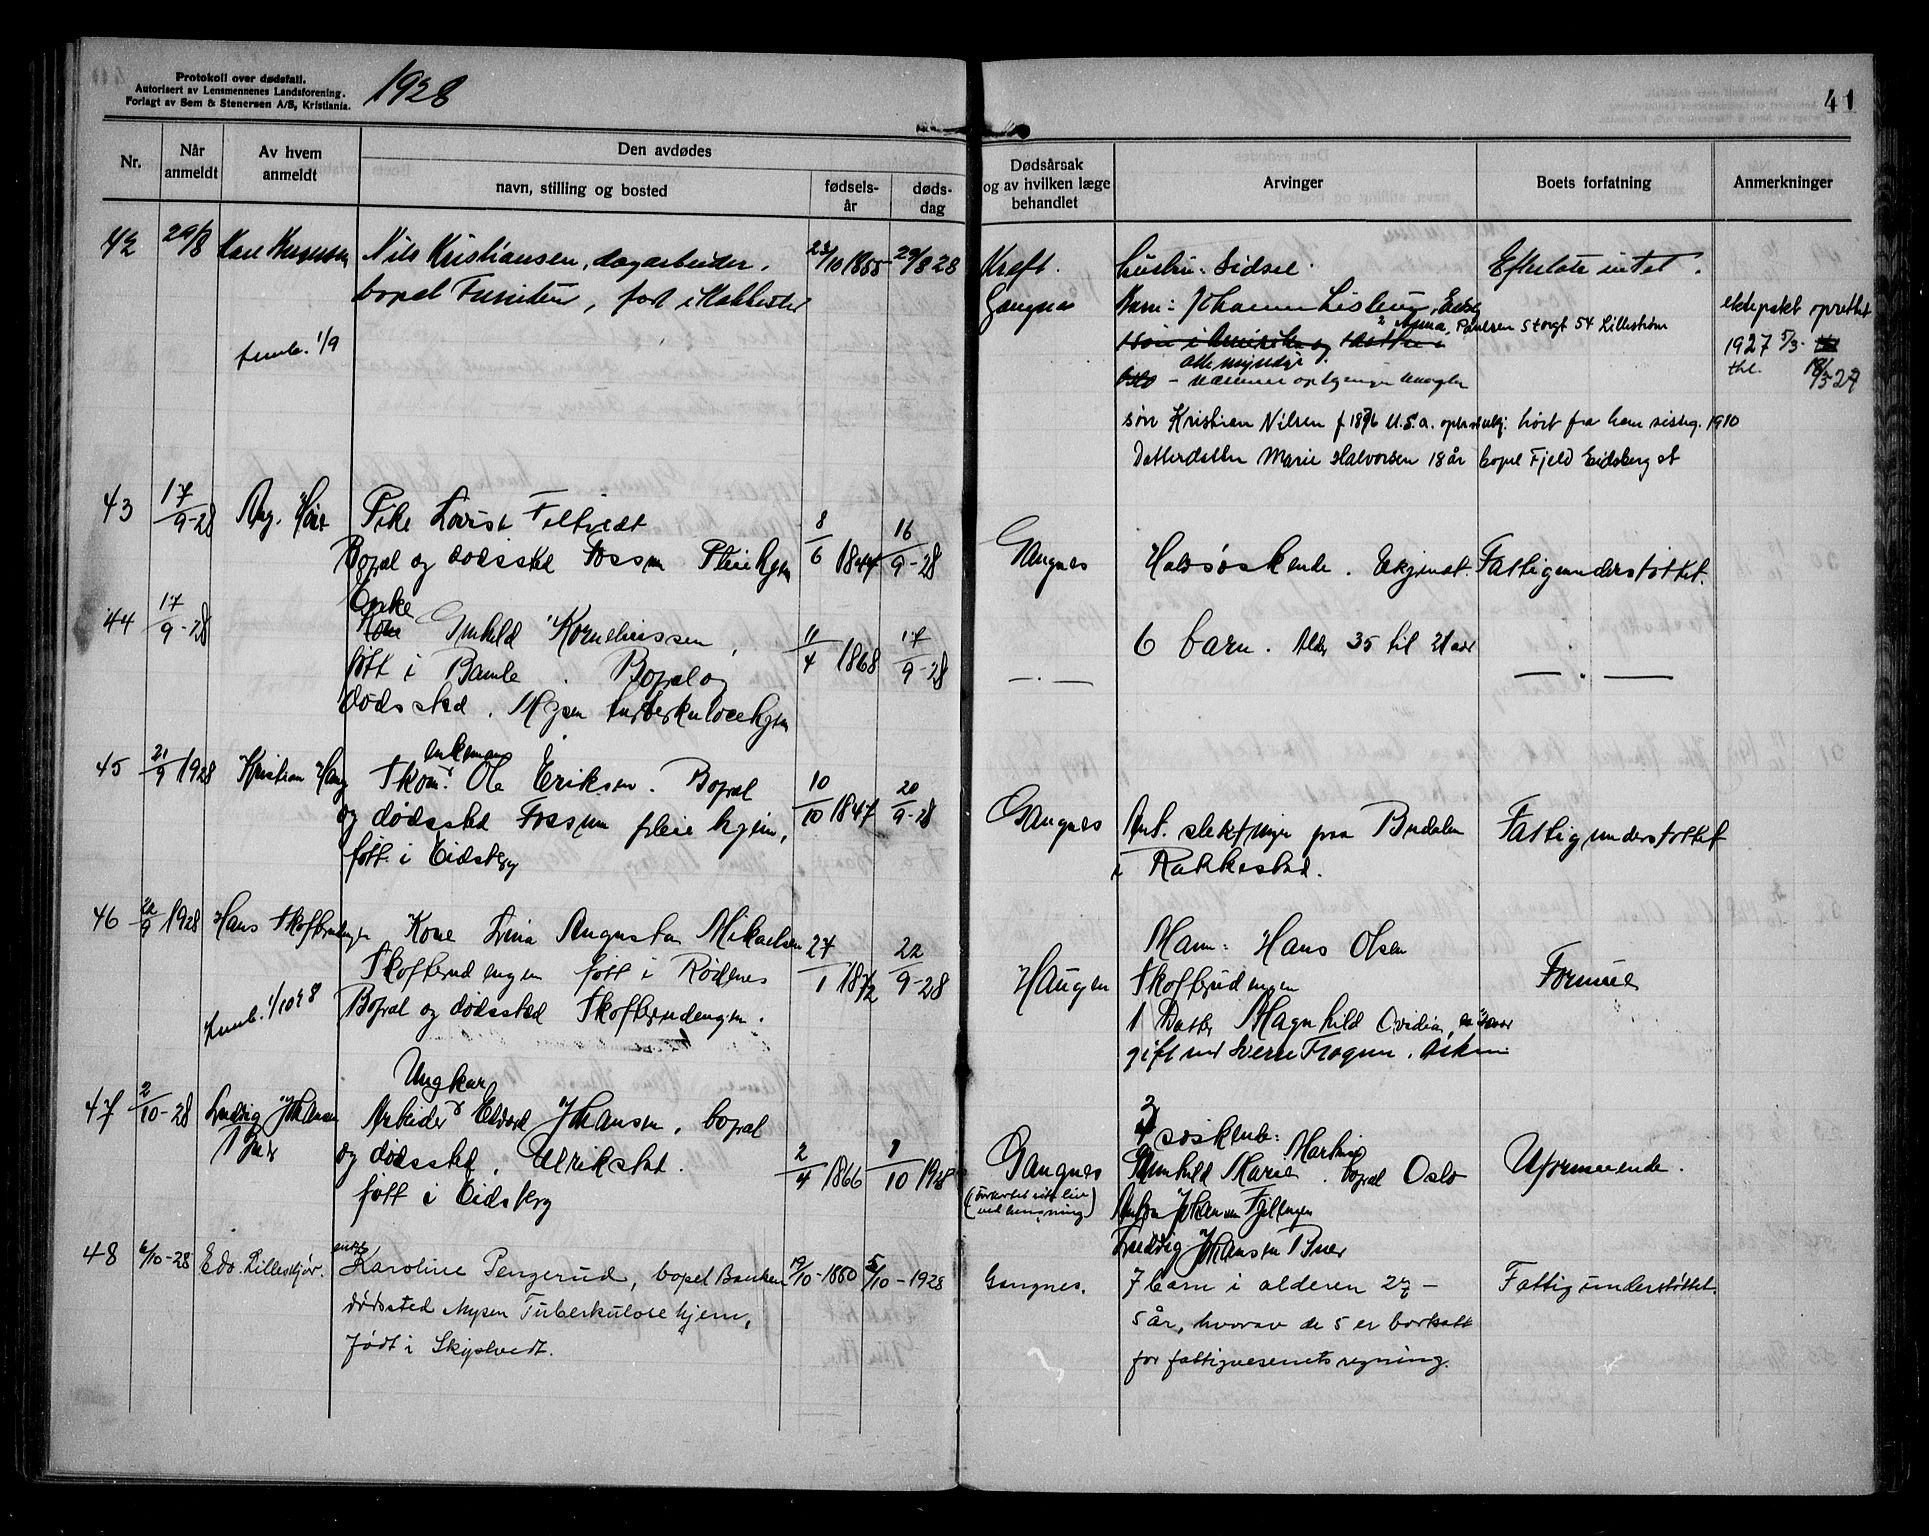 Protokoll over dødsfall.
Autorisert av Lensmennenes Landsforening.
Forlagt av Sem & Stenersen A/S, Kristiania.
1928
41
Nr.
Når anmeldt
Av hvem anmeldt
Den avdødes
navn, stilling og bosted
fødsels-år
døds-dag
Dødsårsak og av hvilken læge behandlet
Arvinger
Boets forfatning
Anmerkninger
42 29/8 Karl
Nils Kristiansen, dagarbeider.
bopæl født i Rakkestad
1/9
23/10 1855 29/8 28
Kreft.
Gangnes
hustru: Sidsel.
Barn: Johanne
Anna, Paulsen Storgt 54 Lillestrøm
alle myndige
søn Kristian Nilsen f 1876 U.S.a. hørt fra ham sisteg. 1910
Datterdatter Marie Halvorsen 18 år bopæl Fjeld Eidsberg
Efterlate intet.
ektepakt oprettet
1927 5/3
18/5 27
43 17/9-28
Pike Lovise Feltvedt
Bopæl og dødssted Fossum Pleiehjem
8/6 1844 16/9-28
Gangnes
Halvsøskende. Ukjent.
Fattigunderstøttet.
44 17/9-28
Enke
Kone Gunhild Korneliussen,
født i Bamle. Bopæl og
dødssted. Mysen tuberkulosehjem
11/4 1868 17/9-28
— " —
6 barn. Alder 35 til 21 aar
— " —
45 21/9 1928 Kristian Haug
enkemann
Skom. Ole Eriksen. Bopæl
og dødssted Fossum pleiehjem,
født i Eidsberg
10/10 1847 20/9-28
Gangnes
Ant. slektninger paa Budalen
i Rakkestad.
Fattigunderstøttet
46 22/9 1928 Hans Skofterudengen
1/10 28
Kone Lina Augusta Mikaelsen
Skofterudengen født i Rødenes
Bopæl og dødssted Skofterudengen.
27/1 1872 22/9-28
Haugen
Mann: Hans Olsen
Skofterudengen
1 Datter Magnhild Ovidia,
gift med Sverre Frogner. Askim
Formue
47 2/10-28 Ludvig Johansen
Ungkar
Arbeider Edvard Johansen, bopæl
og dødssted. Ulrikstad.
født i Eidsberg
2/4 1866 1/10 1928
Gangnes
3 søskende:
Gunhild Marie Martine. bopæl Oslo
Anton Johansen
Ludvig Johansen
Uformuende.
48 6/10-28 Edv. Lilleskjør.
enke
Karoline Pengerud, bopæl Banken
dødssted Mysen Tuberkulosehjem,
født i Skiptvedt.
19/10-1880 5/10-1928
Gangnes.
7 barn i alderen 27 -
5 år, hvorav de 5 er bortsatt
for fattigvesenets regning.
Fattigunderstøttet.